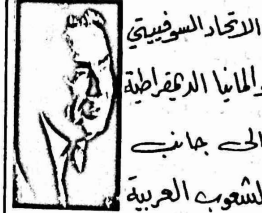 الاتحاد السوفييتي
والمانيا الديمقراطية
الى جانب
الشعوب العربية